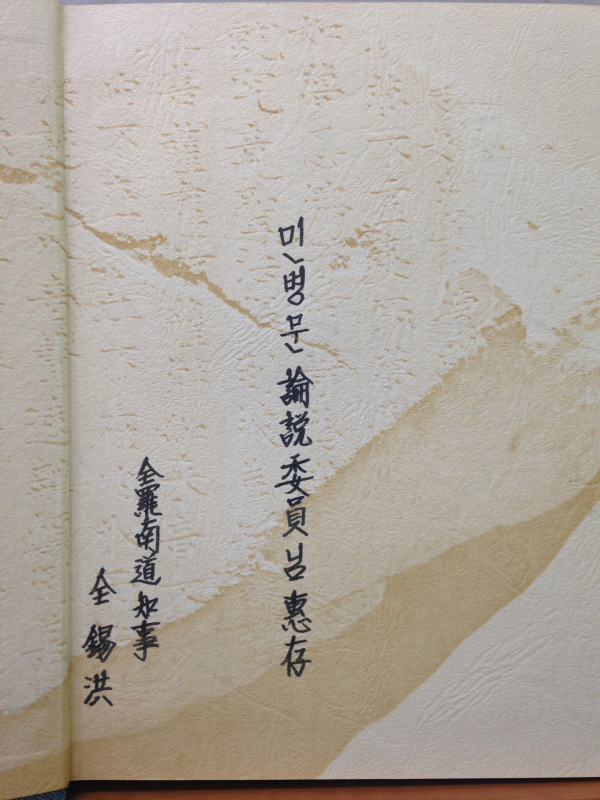 민병문 論說委員님 惠存
全羅南道知事
全錫洪